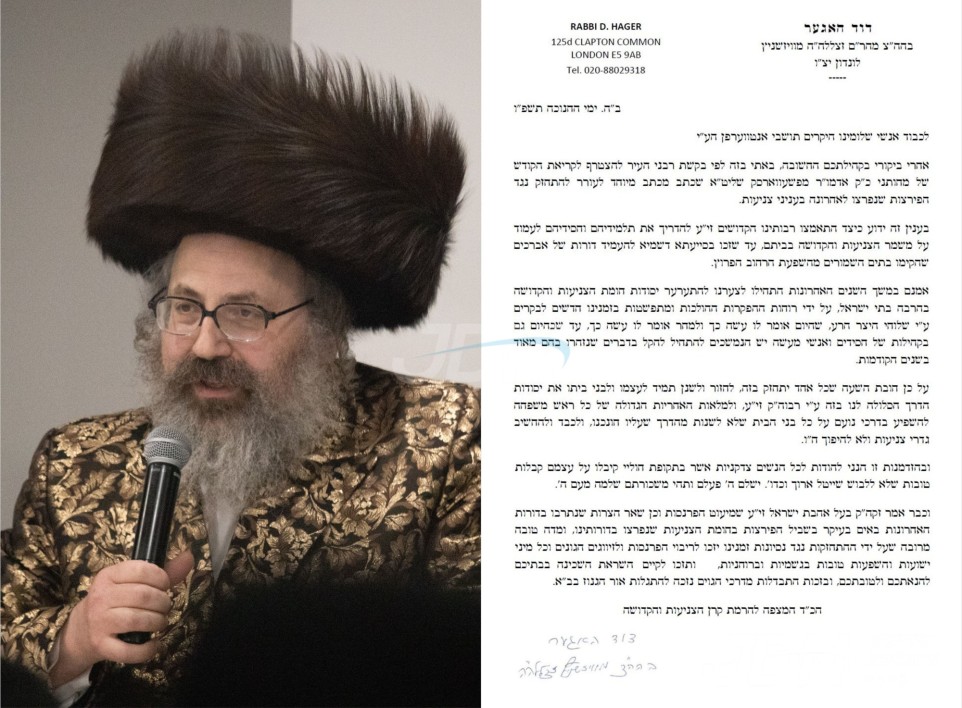 RABBI D. HAGER
125d CLAPTON COMMON
LONDON E5 9AB
Tel. 020-88029318
דוד האגער
בהה"צ מהר"ם זצללה"ה מוויזשניץ
לונדון יצ"ו
-----
ב"ה. ימי החנוכה תשפ"ו
לכבוד אנשי שלומינו היקרים תושבי אנטווערפן הע"י
אחרי ביקורי בקהילתכם החשובה, באתי בזה לפי בקשת רבני העיר להצטרף לקריאת הקודש
של מחותני כ"ק אדמו"ר מפשעווארסק שליט"א שכתב מכתב מיוחד לעורר להתחזק נגד
הפירצות שנפרצו לאחרונה בעניני צניעות.
בענין זה ידוע כיצד התאמצו רבותינו הקדושים זי"ע להדריך את תלמידיהם וחסידיהם לעמוד
על משמר הצניעות והקדושה בביתם, עד שזכו בסייעתא דשמיא להעמיד דורות של אברכים
שהקימו בתים השמורים מהשפעת הרחוב הפרוץ.
אמנם במשך השנים האחרונות התחילו לצערנו להתערער יסודות חומת הצניעות והקדושה
בהרבה בתי ישראל, על ידי רוחות ההפקרות ההולכות ומתפשטות בזמנינו חדשים לבקרים
ע"י שלוחי היצר הרע, שהיום אומר לו עשה כך ולמחר אומר לו עשה כך, עד שכהיום גם
בקהילות של חסידים ואנשי מעשה יש הנמשכים להתחיל להקל בדברים שנזהרו בהם מאוד
בשנים הקודמות.
על כן חובת השעה שכל אחד יתחזק בזה, לחזור ולשנן תמיד לעצמו ולבני ביתו את יסודות
הדרך הסלולה לנו בזה ע"י רבוה"ק זי"ע, ולמלאות האחריות הגדולה של כל ראש משפחה
להשפיע בדרכי נועם על כל בני הבית שלא לשנות מהדרך שעליו חונכנו, ולכבד ולהחשיב
גדרי צניעות ולא להיפוך ח"ו.
ובהזדמנות זו הנני להודות לכל הנשים צדקניות אשר בתקופת חוליי קיבלו על עצמם קבלות
טובות שלא ללבוש שייטל ארוך וכדו'. ישלם ה' פעלם ותהי משכורתם שלמה מעם ה'.
וכבר אמר זקה"ק בעל אהבת ישראל זי"ע שמיעוט הפרנסות וכן שאר הצרות שנתרבו בדורות
האחרונות באים בעיקר בשביל הפירצות בחומת הצניעות שנפרצו בדורותינו, ומדה טובה
מרובה שעל ידי ההתחזקות נגד נסיונות זמנינו יזכו לריבוי הפרנסות ולזיווגים הגונים וכל מיני
ישועות והשפעות טובות בגשמיות וברוחניות, ותזכו לקיים השראת השכינה בבתיכם
להנאתכם ולטובתכם, ובזכות התבדלות מדרכי הגוים נזכה להתגלות אור הגנוז בב"א.
הכ"ד המצפה להרמת קרן הצניעות והקדושה
דוד האגער